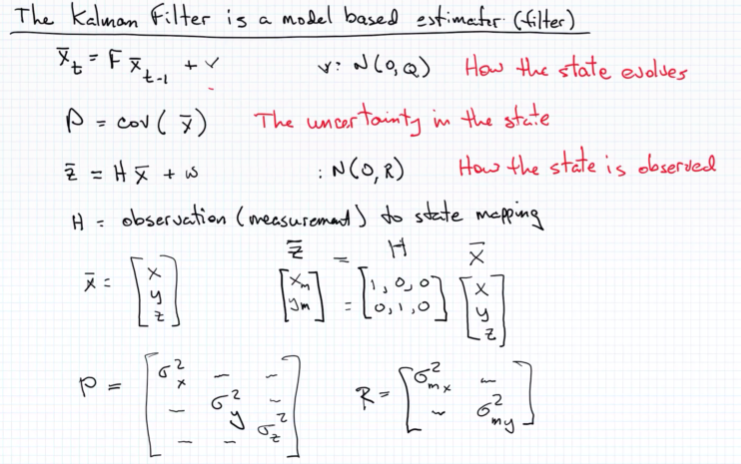 The Kalman Filter is a model based estimator (filter)
x̄_t = F x̄_{t-1} + v    v: N(0,Q)    How the state evolves
P = cov(x̄)    The uncertainty in the state
z̄ = H x̄ + w    : N(0,R)    How the state is observed
H = observation (measurement) to state mapping
z̄ = H x̄
x̄ = [x y z]    [x_m y_m] = [1,0,0 0,1,0] [x y z]
P = [σ_x^2 - - - σ_y^2 - - - σ_z^2]    R = [σ_mx^2 - - σ_my^2]